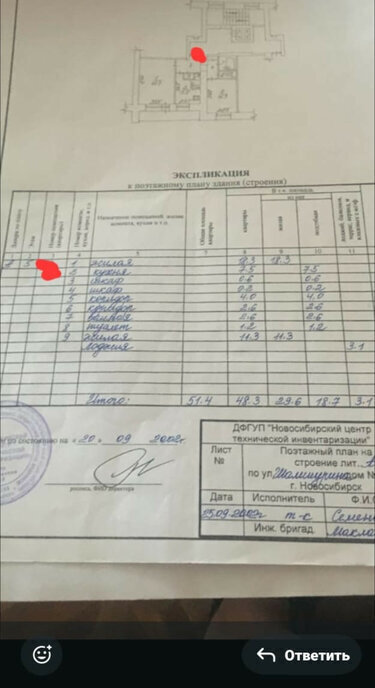 ЭКСПЛИКАЦИЯ
к поэтажному плану здания (строения)
Этаж
Общая площадь квартиры
квартиры
жилая
подсобная
4 5 7 8 9 10 11
1 жилая 18.3 18.3
2 кухня 7.5 7.5
3 шкаф 0.6 0.6
4 шкаф 0.2 0.2
5 коридор 4.0 4.0
6 коридор 2.6 2.6
7 ванная 2.6 2.6
8 туалет 1.2 1.2
9 жилая 11.3 11.3
лоджия 3.1
Итого: 51.4 48.3 29.6 18.7 3.1
по состоянию на «20» 09 2002г.
роспись, ФИО директора
ДФГУП "Новосибирский центр
технической инвентаризации"
Лист
№
Поэтажный план на
строение лит.
по ул.
г. Новосибирск
Дата Исполнитель Ф.И.О
25.09.2002г т-к Семен
Инж. бригад.
Ответить